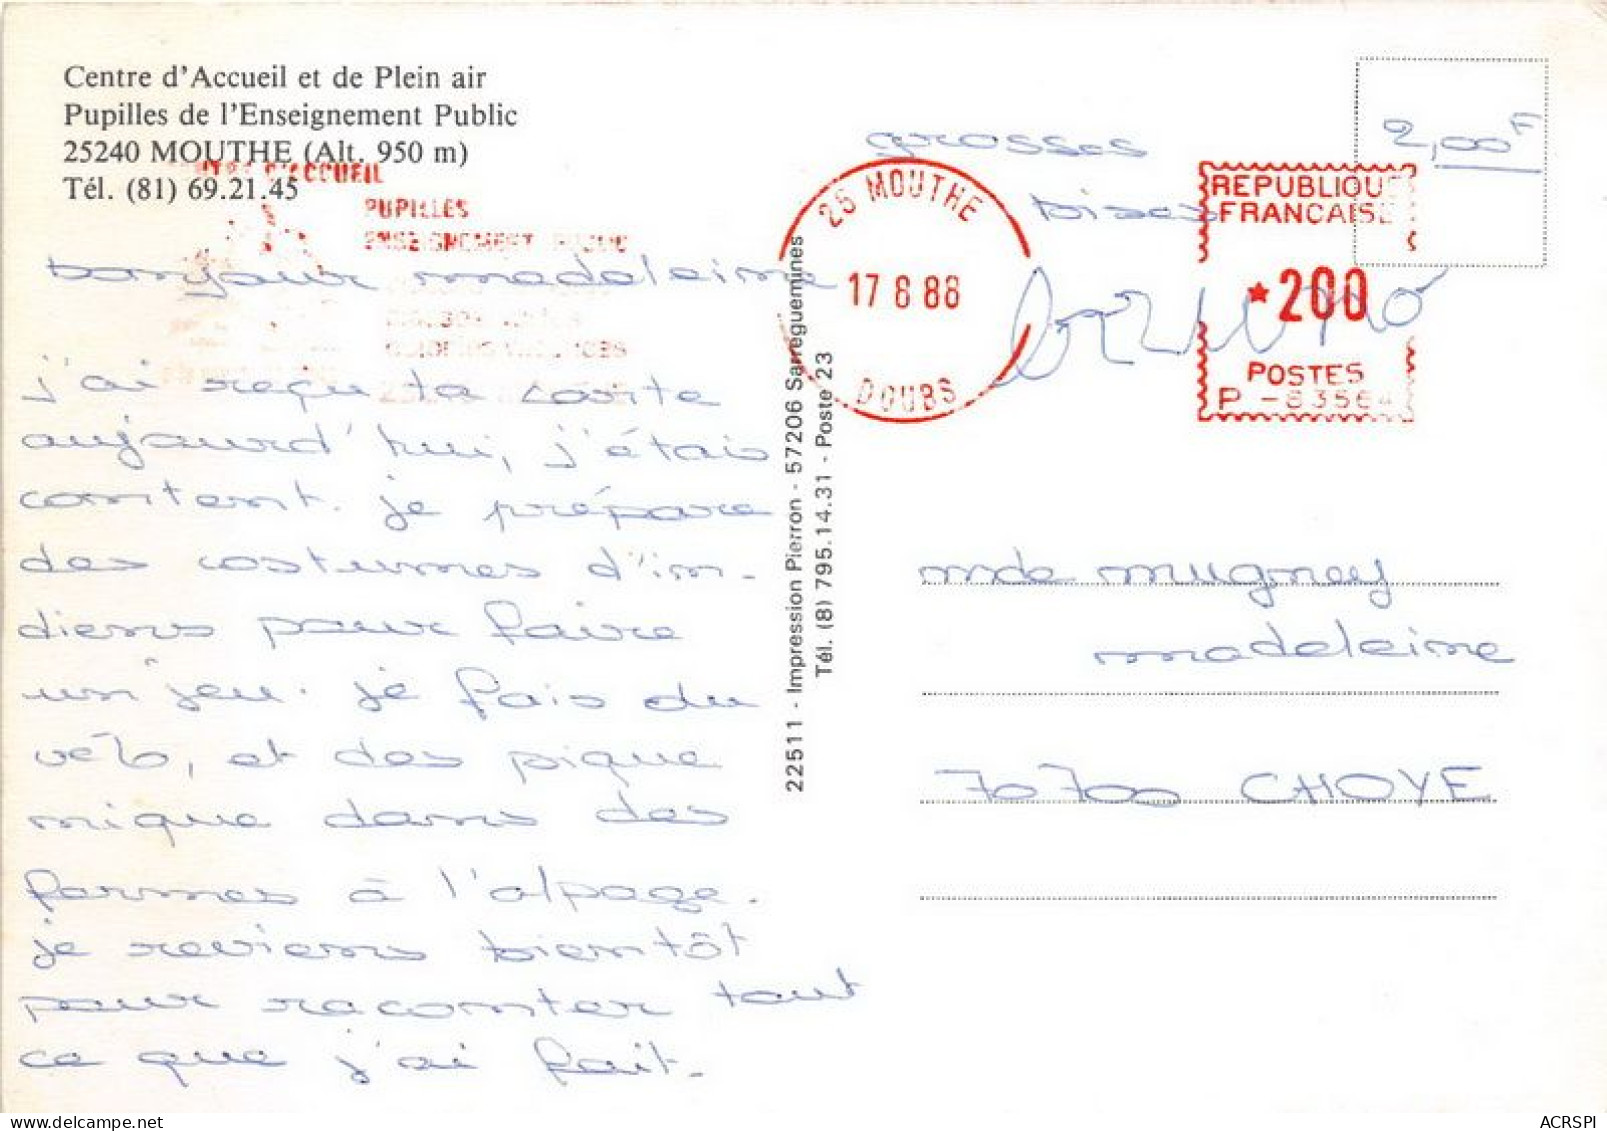 Centre d'Accueil et de Plein air
Pupilles de l'Enseignement Public
25240 MOUTHE (Alt. 950 m)
Tél. (81) 69.21.45
D'ACCUEIL
PUPILLES
ENSEIGNEMENT PUBLIC
bonjour madeleine
j'ai reçu ta carte
aujourd'hui, j'étais
content. je prépare
des costumes d'in-
diens pour faire
un jeu. je fais du
vélo, et des pique
nique dans des
fermes à l'alpage.
je reviens bientôt
pour raconter tout
ce que j'ai fait.
22511 - Impression Pierron - 57206 Sarreguemines
Tél. (8) 795.14.31 - Poste 23
grosses
bises
25 MOUTHE
17 8 88
DOUBS
REPUBLIQUE
FRANCAISE
*200
POSTES
P -83564
2,00F
mde mugney
madeleine
70700 CHOYE
ACRSPI